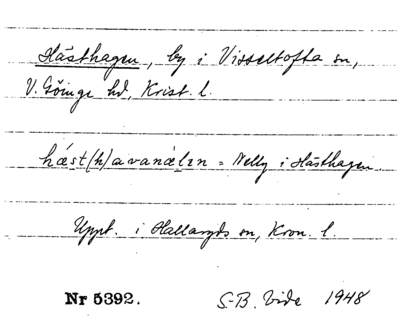 Hästhagen, by i Visseltofta sn,
V. Göinge hd, Krist. l.
hǽst(h)avanǽlın = Nelly i Hästhagen
Uppt. i Hallaryds sn, Kron. l.
Nr 5392.
S-B. Vide 1948